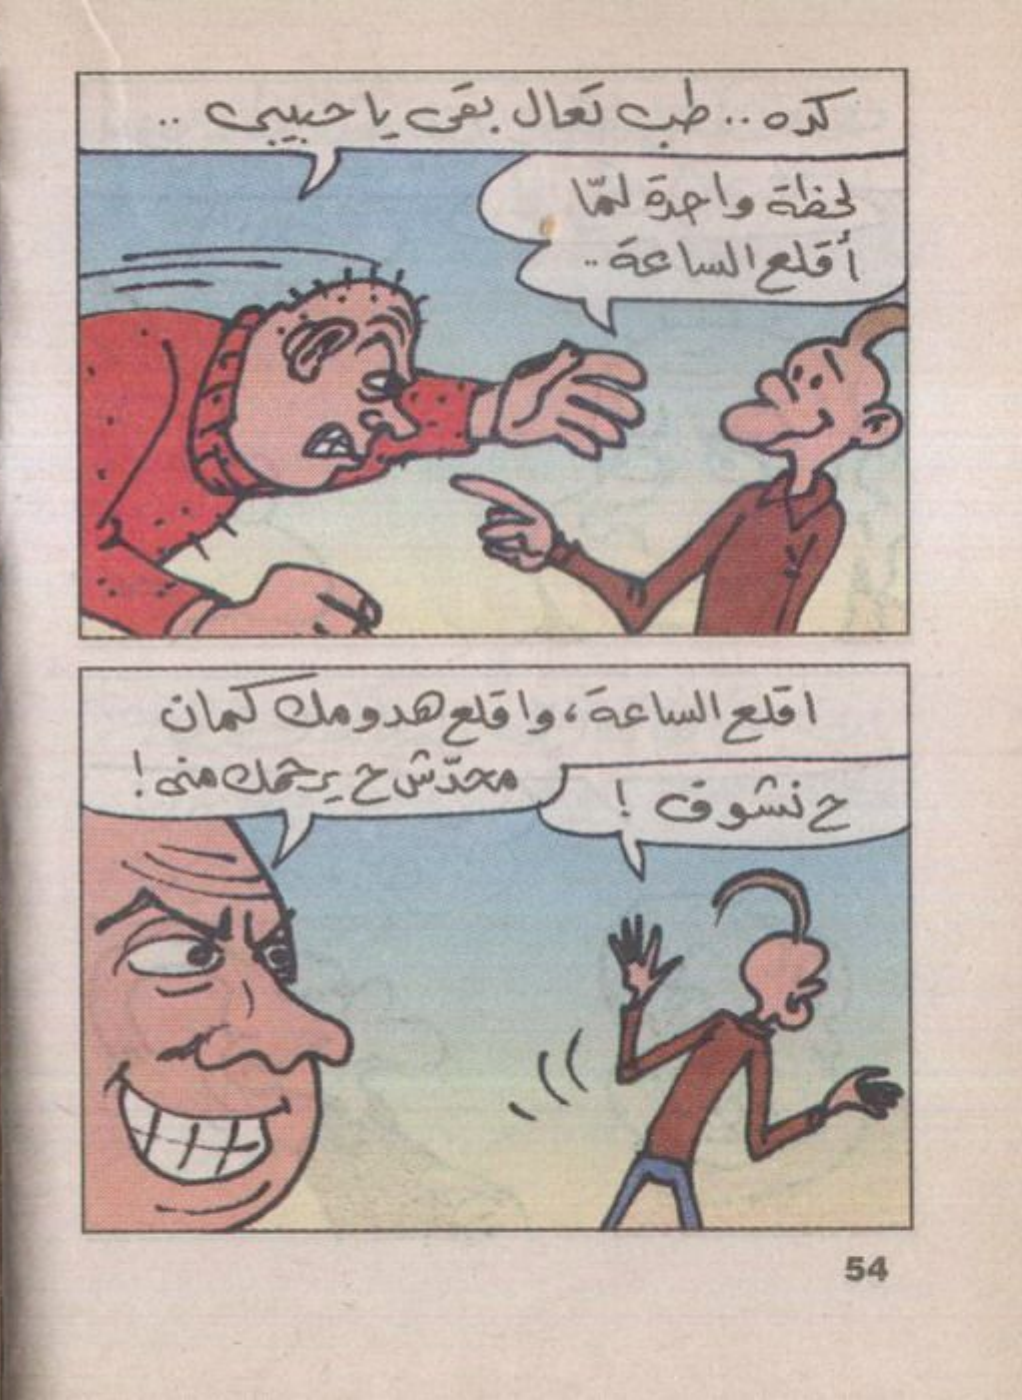 كده.. طب تعال بقى يا حبيبى ..
لحظة واحدة لمّا
أقلع الساعة ..
اقلع الساعة، واقلع هدومك كمان
محدّش ح يرحمك منى!
ح نشوف !
54